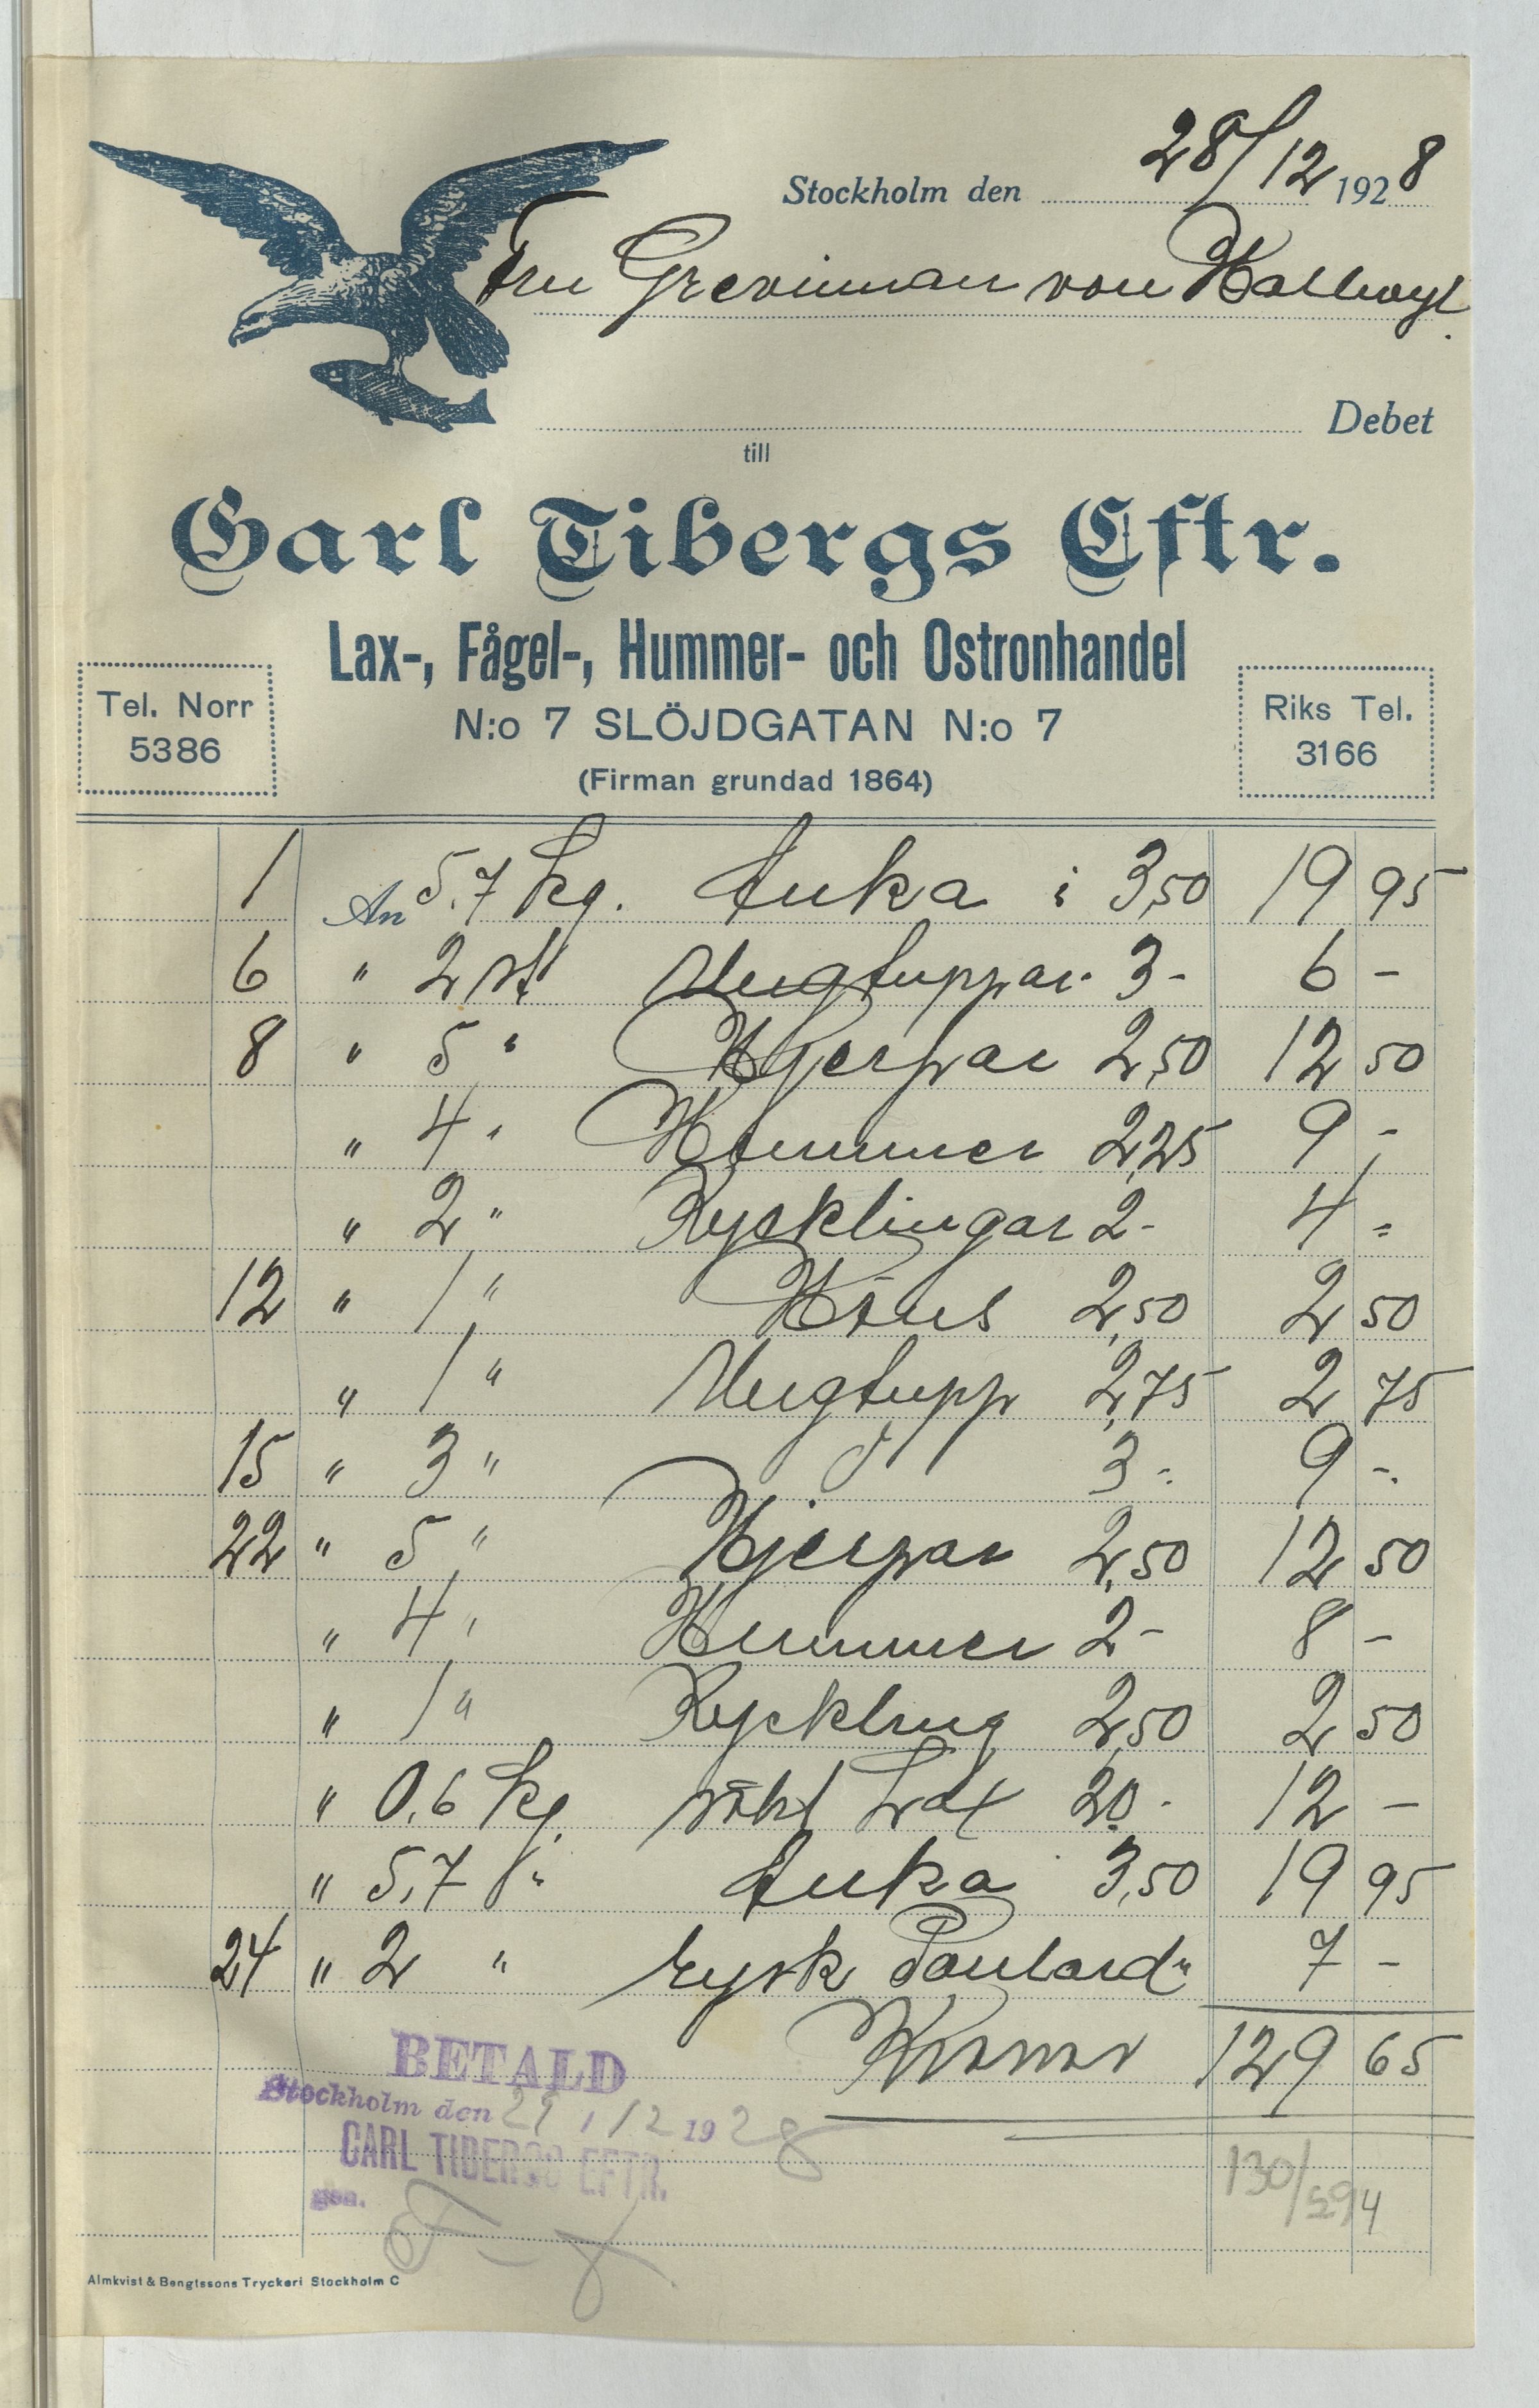 Stockholm den 28/12 1928
Fru Grevinnan von Hallwyl
Debet
till
Carl Tibergs Eftr.
Lax-, Fågel-, Hummer- och Ostronhandel
Tel. Norr 5386
N:o 7 SLÖJDGATAN N:o 7
Riks Tel. 3166
(Firman grundad 1864)
1 An 5,7 kg. Anka i 3,50 19 95
6 " 2 st Ungtuppar 3- 6 -
8 " 5 " Hjerpar 2,50 12 50
" 4 " Hummer 2,25 9 -
" 2 " Kycklingar 2- 4 -
12 " 1 " Höns 2,50 2 50
" 1 " Ungtupp 2,75 2 75
15 " 3 " d 3- 9 -
22 " 5 " Hjerpar 2,50 12 50
" 4 " Hummer 2- 8 -
" 1 " Kyckling 2,50 2 50
" 0,6 kg. rökt Lax 20- 12 -
" 5,7 " Anka 3,50 19 95
24 " 2 " Rysk Poulard 7 -
Kronor 129 65
BETALD
Stockholm den 29/12 1928
CARL TIBERGS EFTR.
gen.
130/594
Almkvist & Bengtssons Tryckeri Stockholm C